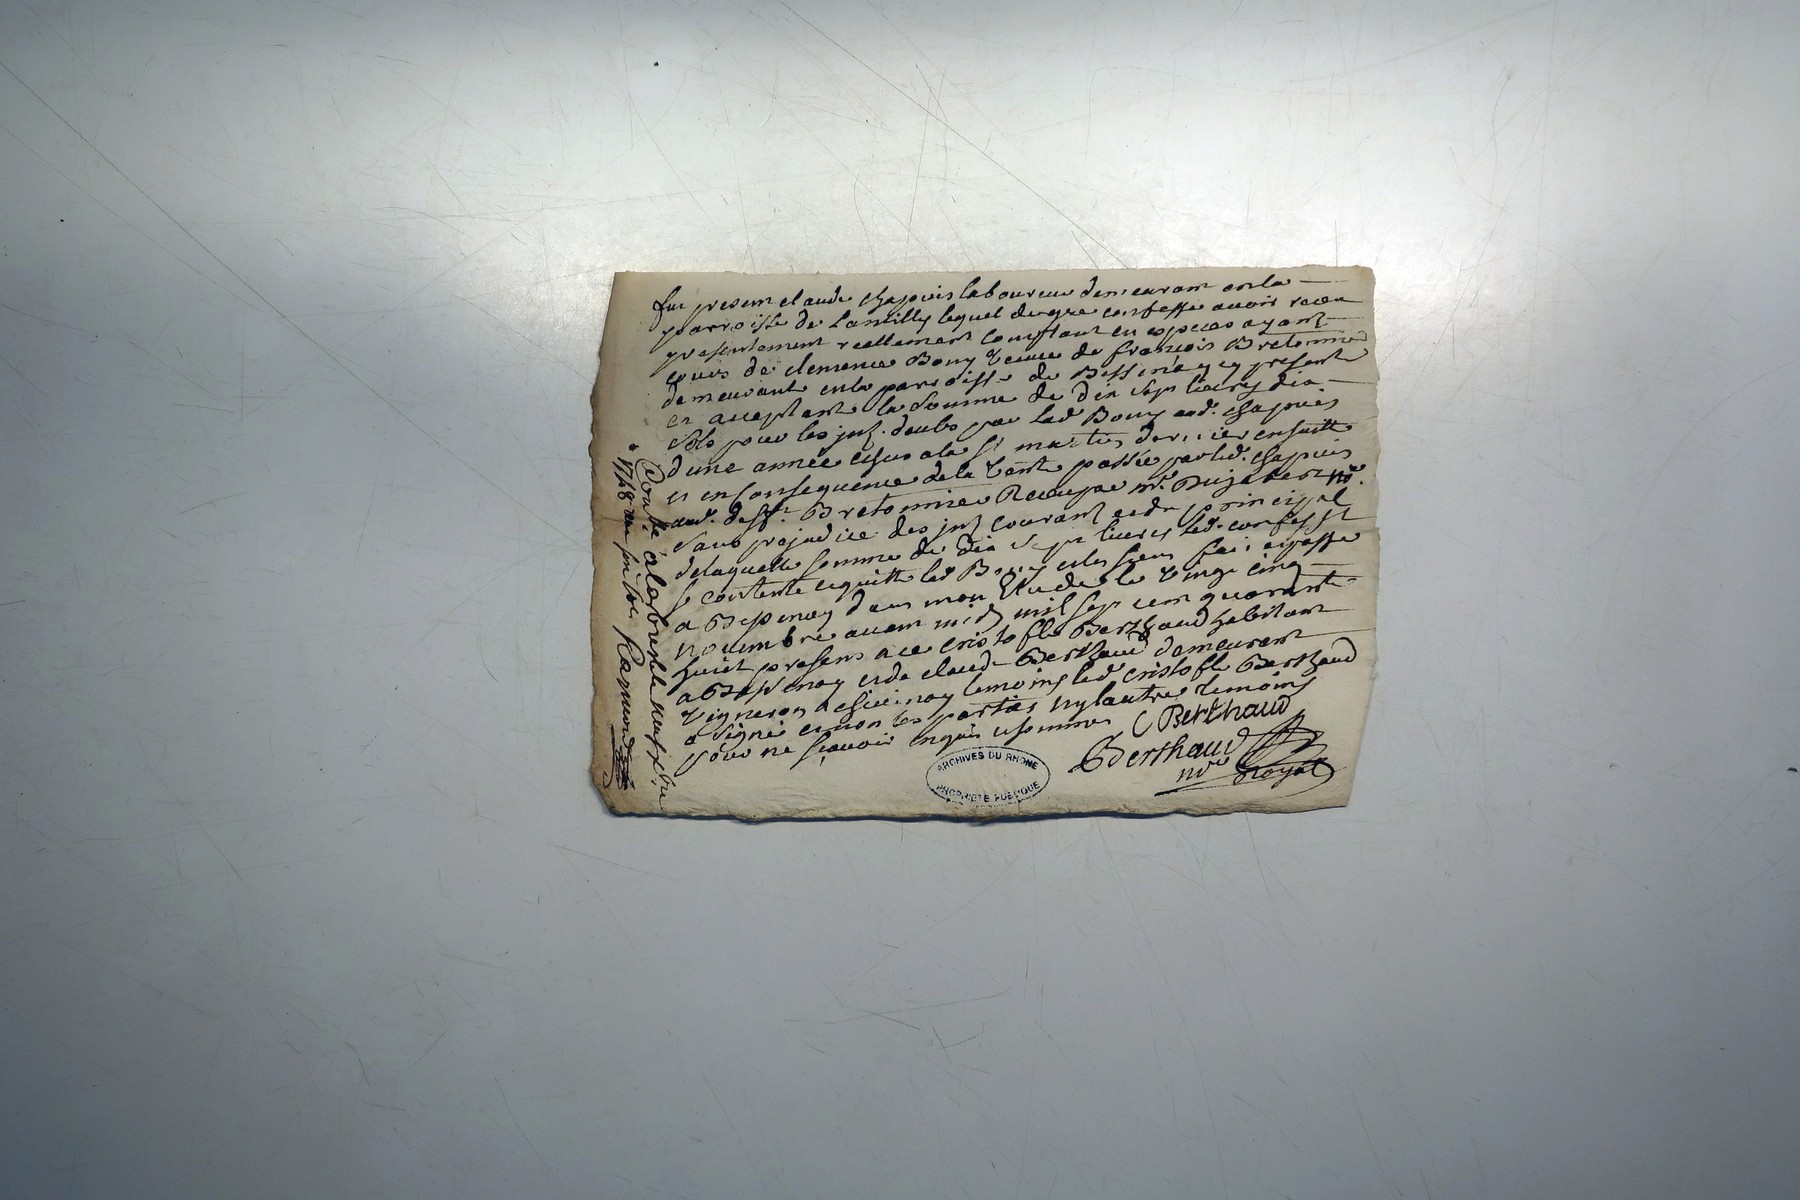 fut present claude chapuis laboureur demeurant en la
parroisse de Lantilly lequel de gre confesse avoir receu
presentement reellement comptant en especes ayant
cours de clemence Bouy veuve de françois Bretonnier
demeurante en la parroisse de Bessenay cy presente
et acceptante la somme de dix sept livres dix
sols pour les int. deubs par lad Bouy aud. chapuis
d'une année echue a la St martin dernier en suitte
et en consequence de la vente passée par led. chapuis
aud. deff.t Bretonnier Receupar mr. no.re
sans prejudice des int courant et du principal
de laquelle somme de dix sept livres led. confesst
se contente et quitte lad Bouy et les siens fait et passé
a Bessenay dans mon Etude le vingt cinq
novembre avant midy mil sept cent quarante
huict presens a ce cristofle Berthaud habitant
a Bessenay et de claude Berthaud demeurant
vigneron a chevinay temoins led cristofle Berthaud
a signé et non les parties ny lautre temoins
pour ne sçavoir enquis et sommes C Berthaud
Berthaud
no.re Royal
ARCHIVES DU RHONE
PROPRIÉTÉ PUBLIQUE
Conte a larbresle neuf xbre
1748 Ramond